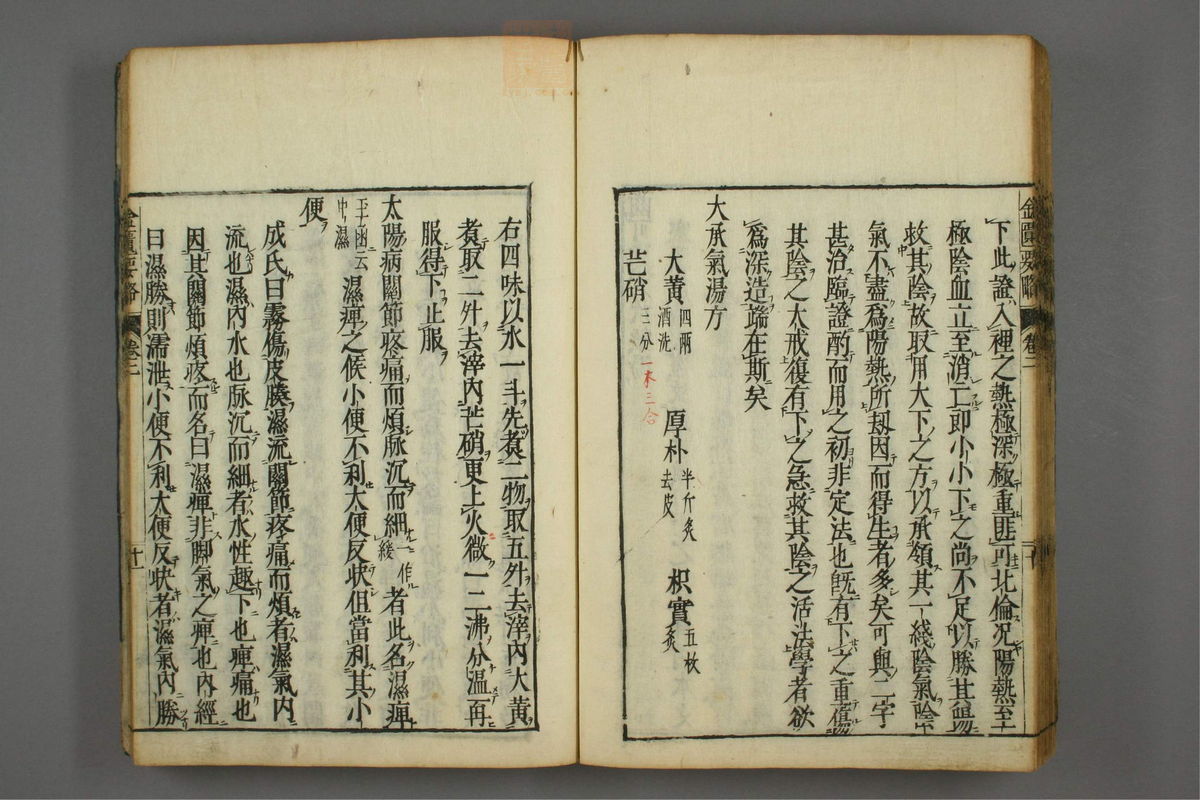 下此證入裡之熱極深極重匪可比倫況陽熱至
極陰血立至消亡即小小下之尚不足以勝其陽
救其陰故取用大下之方以承領其一綫陰氣陰
氣不盡為陽熱所刼因而得生者多矣可與二字
甚治臨證酌而用之初非定法也旣有下之重傷
其陰之大戒復有下之急救其陰之活法學者欲
為深造端在斯矣
大承氣湯方
大黄四兩酒洗 厚朴半斤炙去皮 枳實五枚炙
芒硝三分 一本三合
金匱要略 卷二 十
右四味以水一斗先煮二物取五升去滓内大黄
煮取二升去滓内芒硝更上火微一二沸分温再
服得下止服
太陽病關節疼痛而煩脉沉而細一作緩者此名濕痺
玉函云中濕 濕痺之候小便不利大便反快但當利其小
便
成氏曰霧傷皮腠濕流關節疼痛而煩者濕氣内
流也濕内水也脉沉而細者水性趣下也痺痛也
因其關節煩疼而名曰濕痺非脚氣之痺也内經
曰濕勝則濡泄小便不利大便反快者濕氣内勝
金匱要略 卷二 十一